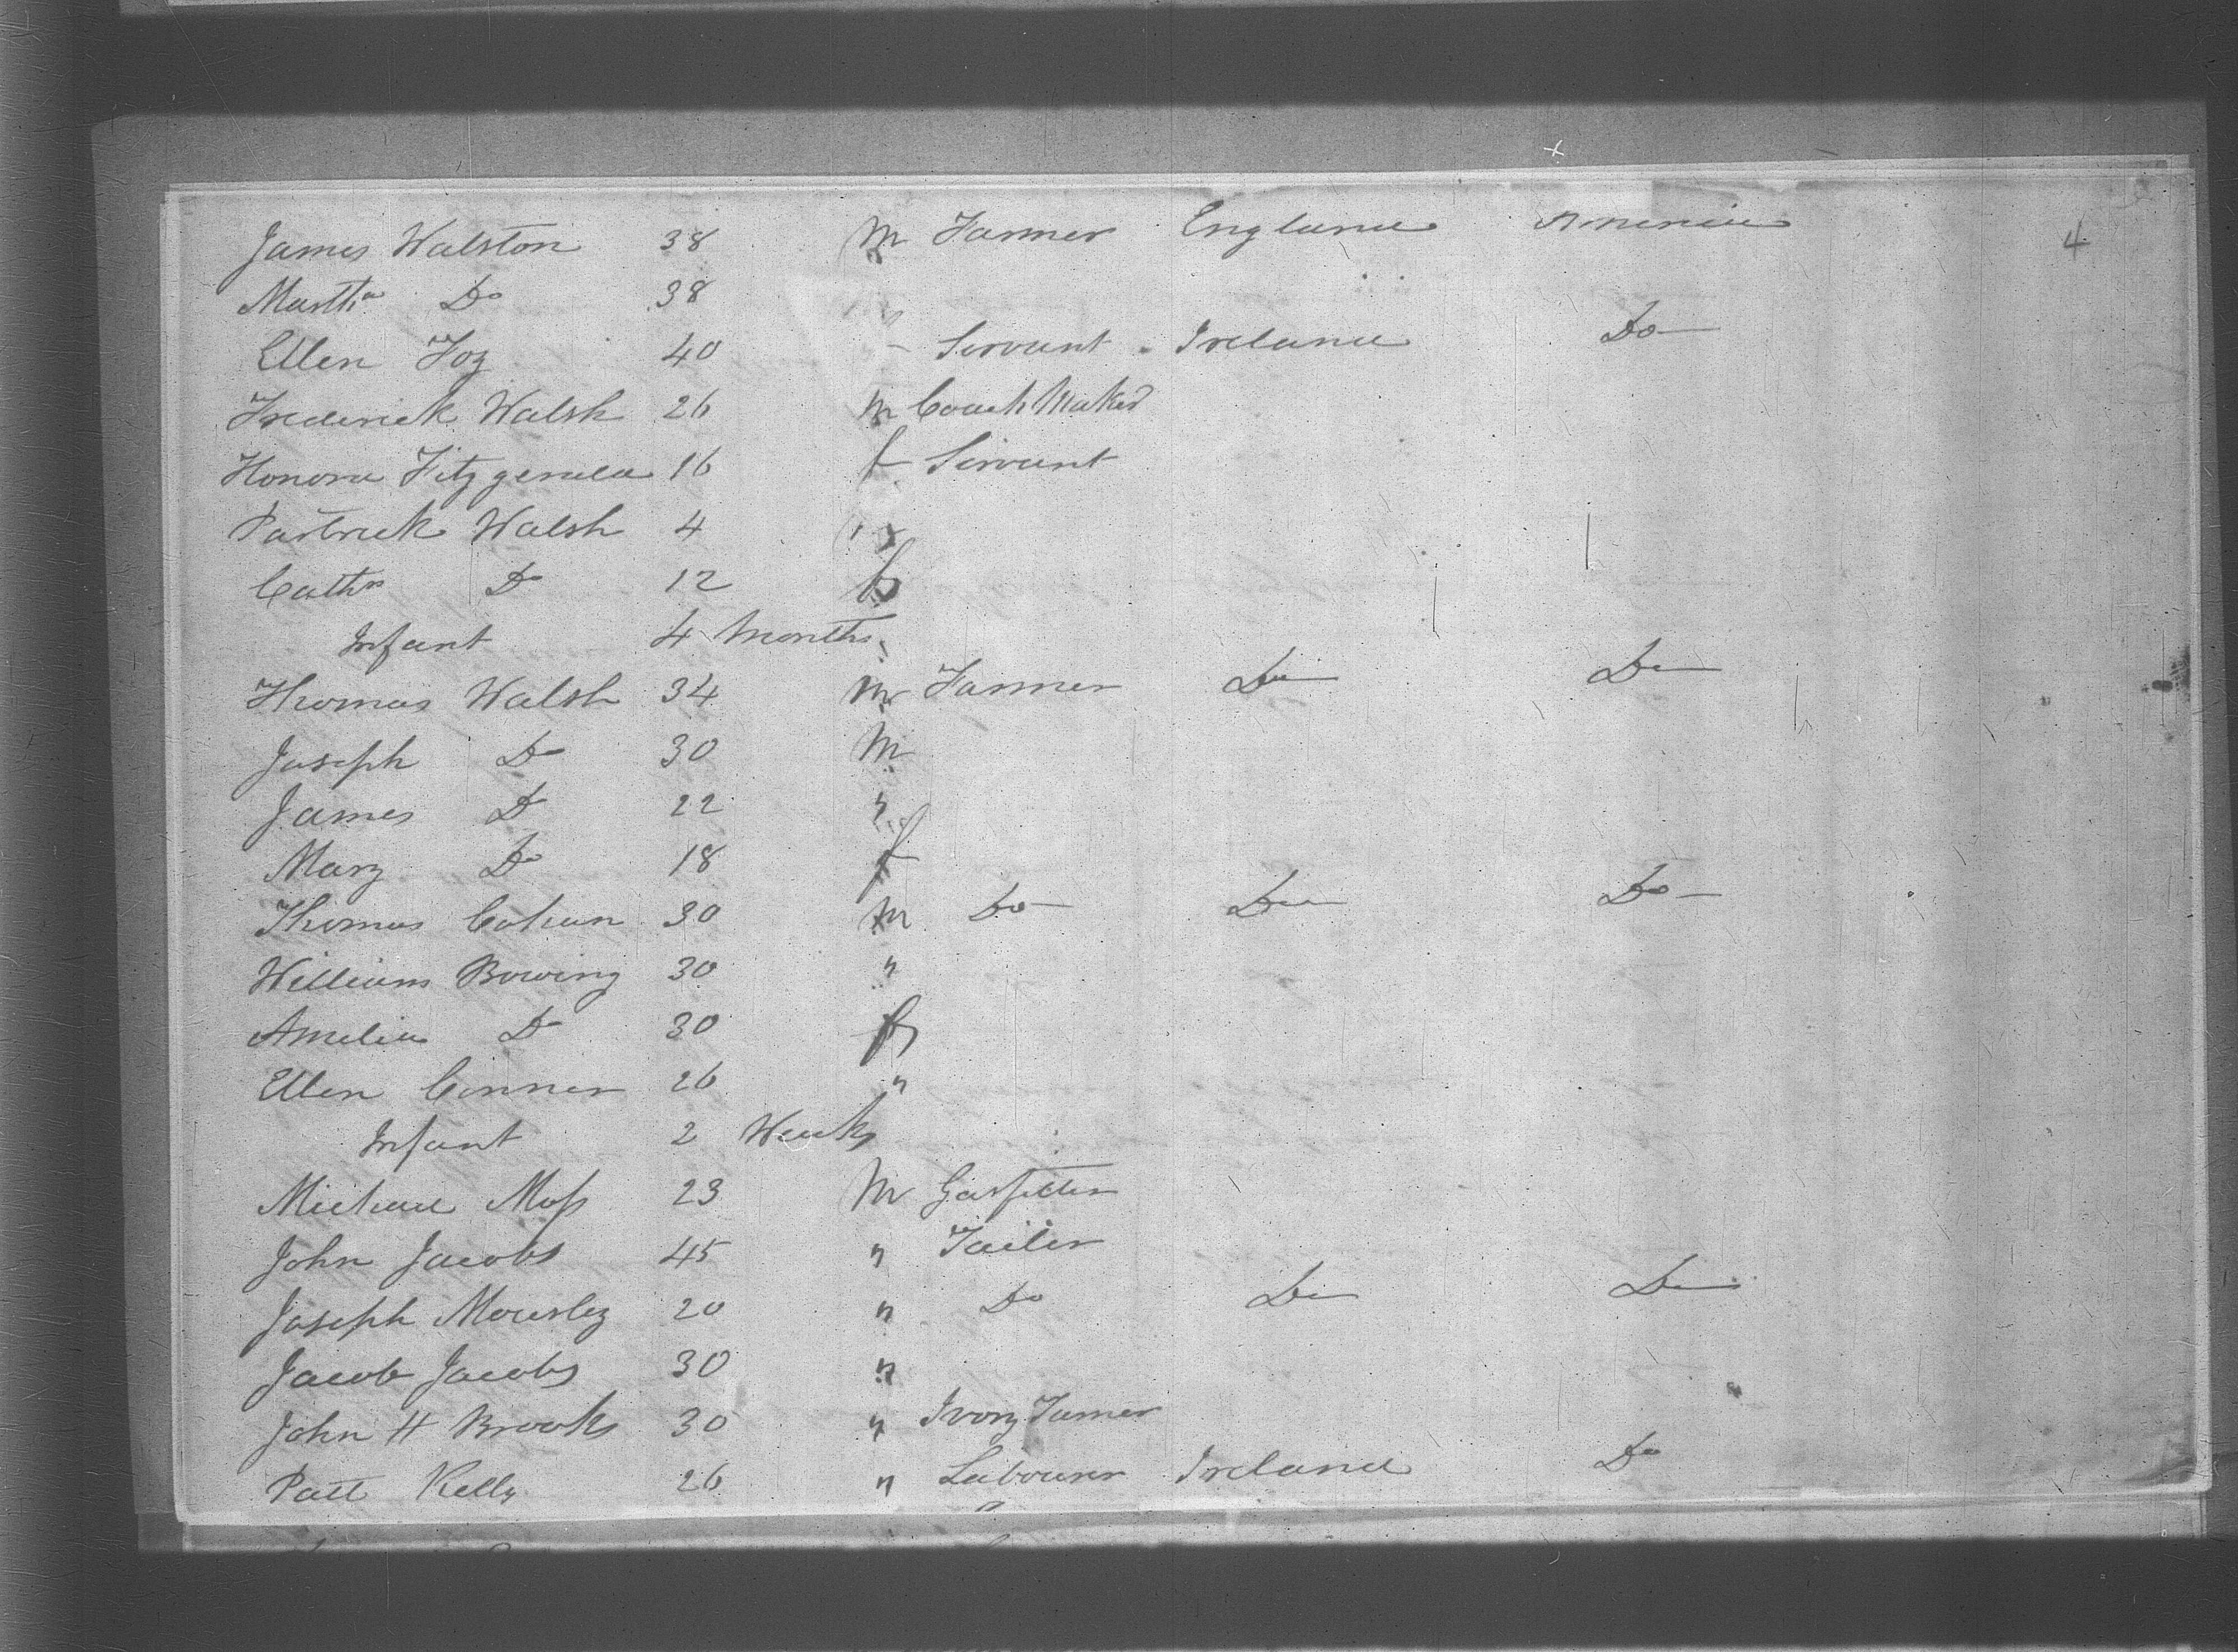 James Walston 38 M Farmer England America 4
Martha Do 38
Ellen Foy 40 Servant Ireland Do
Frederick Walsh 26 M Coach Maker
Honora Fitzgerald 16 f Servant
Patrick Walsh 4
Cathn Do 12 f
Infant 4 Months
Thomas Walsh 34 M Farmer Do Do
Joseph Do 30 M
James Do 22 "
Mary Do 18 f
Thomas Cohan 30 M Do Do Do
William Bowing 30 "
Amelia Do 30 f
Ellen Conner 26 "
Infant 2 Weeks
Michael Moss 23 M Gasfitter
John Jacobs 45 " Tailer
Joseph Mousley 20 " Do Do Do
Jacob Jacobs 30 "
John H Brooks 30 " Ivory Turner
Patt Kelly 26 " Labourer Ireland Do